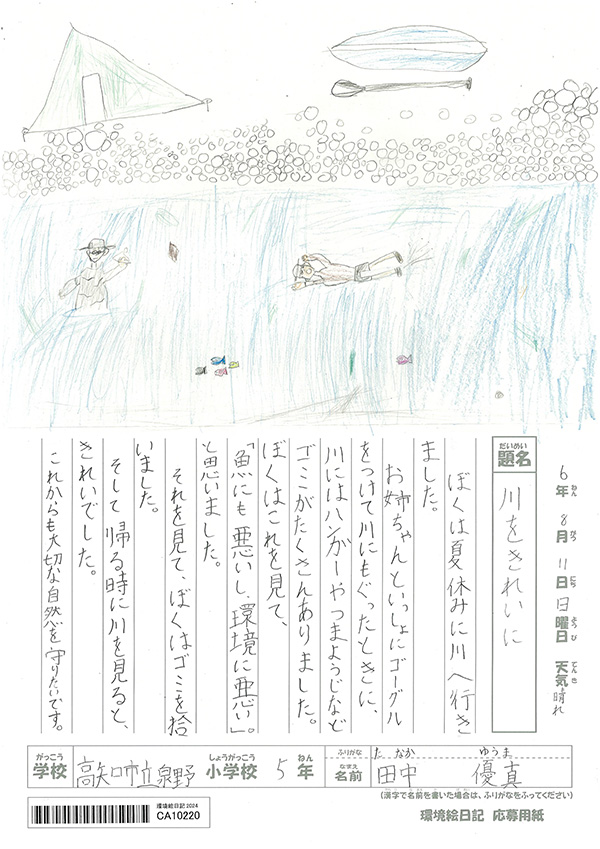 6年 8月 11日 日曜日 天気 晴れ
ねん がつ にち ようび てんき
だいめい
題名
川をきれいに
ぼくは夏休みに川へ行き
ました。
お姉ちゃんといっしょにゴーグル
をつけて川にもぐったときに、
川にはハンガーやつまようじなど
ゴミがたくさんありました。
ぼくはこれを見て、
「魚にも悪いし、環境に悪い」。
と思いました。
それを見て、ぼくはゴミを拾
いました。
そして帰る時に川を見ると、
きれいでした。
これからも大切な自然を守りたいです。
がっこう しょうがっこう ねん
学校 高知市立泉野 小学校 5年
ふりがな たなか ゆうま
なまえ
名前 田中 優真
(漢字で名前を書いた場合は、ふりがなをふってください)
環境絵日記 応募用紙
環境絵日記2024
CA10220